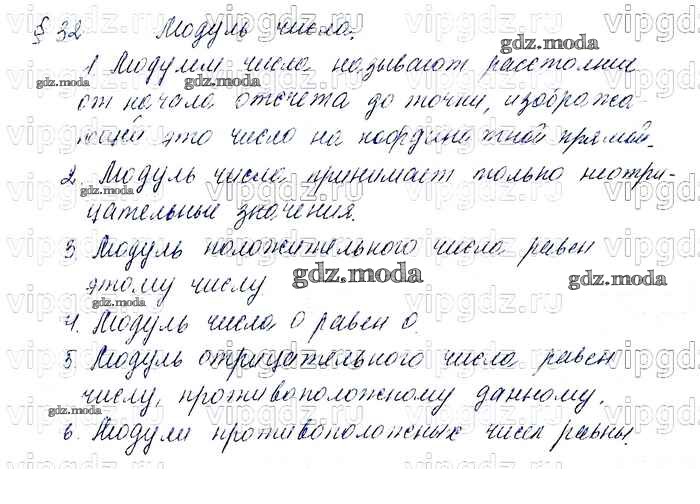 § 32 Модуль числа.
1 Модулем числа называют расстояние
от начала отсчета до точки, изобража
ющей это число на координатной прямой.
2. Модуль числа принимает только неотри-
цательные значения.
3. Модуль положительного числа равен
этому числу
4. Модуль числа 0 равен 0.
5. Модуль отрицательного числа равен
числу, противоположному данному.
6. Модули противоположных чисел равны.
gdz.moda
vipgdz.ru